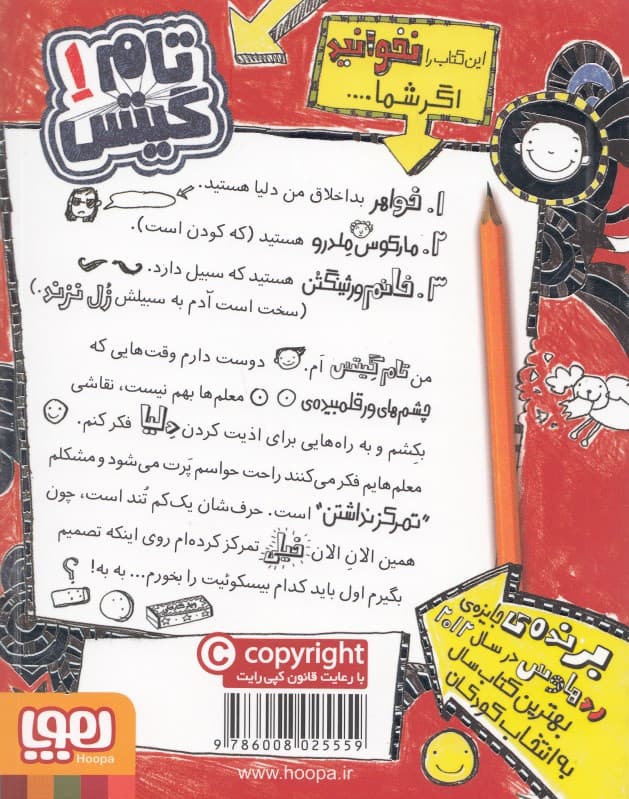 تام
گیتس!
این کتاب را نخوانید
اگر شما ....
۱. خواهر بداخلاق من دلیا هستید.
۲. مارکوس مِلدرو هستید (که کودن است).
۳. خانم ورثینگتُن هستید که سبیل دارد.
(سخت است آدم به سبیلش زُل نزند.)
من تام گیتس اَم. دوست دارم وقت‌هایی که
چشم‌های ورقلمبیده‌ی معلم‌ها بهم نیست، نقاشی
بکِشم و به راه‌هایی برای اذیت کردن دلیا فکر کنم.
معلم‌هایم فکر می‌کنند راحت حواسم پَرت می‌شود و مشکلم
"تمرکز نداشتن" است. حرف‌شان یک‌کم تُند است، چون
همین الانِ الان خیلی تمرکز کرده‌ام روی اینکه تصمیم
بگیرم اول باید کدام بیسکوئیت را بخورم... به به!
؟
برنده‌ی جایزه‌ی
در سال ۲۰۱۲
بهترین کتاب سال
به انتخاب کودکان
© copyright
با رعایت قانون کپی رایت
9 786008 025559
www.hoopa.ir
هوپا
Hoopa